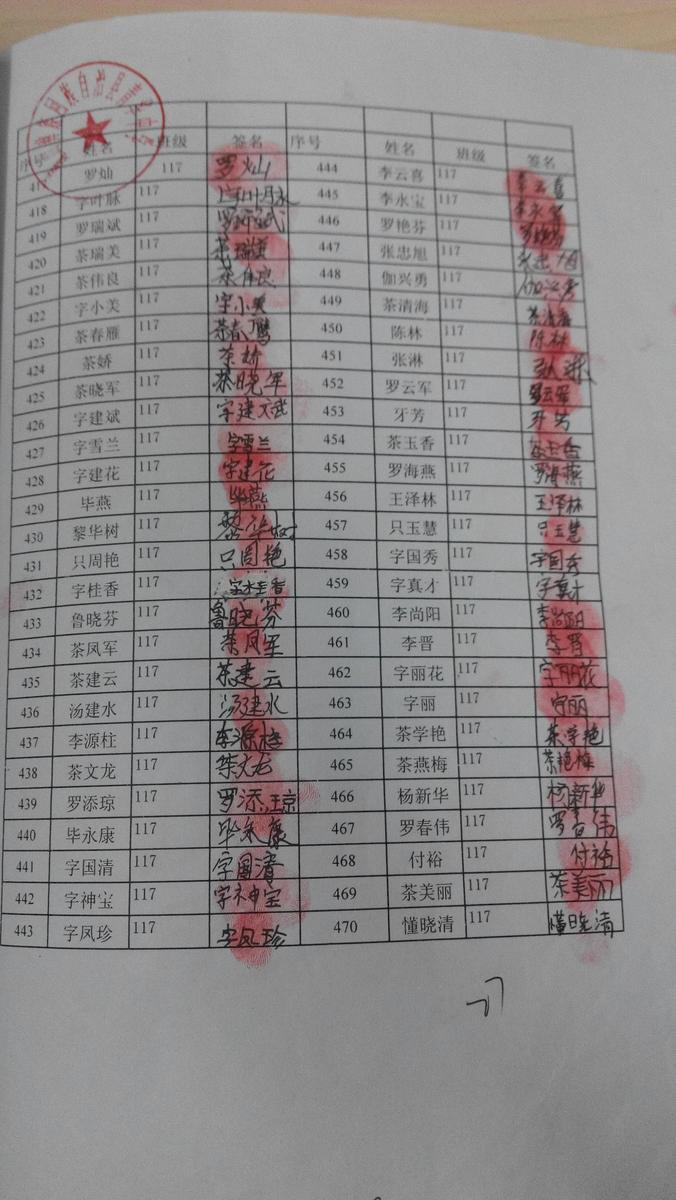 序号 姓名 班级 签名 序号 姓名 班级 签名
罗灿 117 罗灿 444 李云喜 117 李云喜
418 字叶脉 117 字叶脉 445 李永宝 117 李永宝
419 罗瑞斌 117 罗瑞斌 446 罗艳芬 117 罗艳芬
420 茶瑞美 117 茶瑞美 447 张忠旭 117 张忠旭
421 茶伟良 117 茶伟良 448 伽兴勇 117 伽兴勇
422 字小美 117 字小美 449 茶清海 117 茶清海
423 茶春雁 117 茶春鹰 450 陈林 117 陈林
424 茶娇 117 茶娇 451 张淋 117 张淋
425 茶晓军 117 茶晓军 452 罗云军 117 罗云军
426 字建斌 117 字建斌 453 牙芳 117 牙芳
427 字雪兰 117 字雪兰 454 茶玉香 117 茶玉香
428 字建花 117 字建花 455 罗海燕 117 罗海燕
429 毕燕 117 毕燕 456 王泽林 117 王泽林
430 黎华树 117 黎华树 457 只玉慧 117 只玉慧
431 只周艳 117 只周艳 458 字国秀 117 字国秀
432 字桂香 117 字桂香 459 字真才 117 字真才
433 鲁晓芬 117 鲁晓芬 460 李尚阳 117 李尚阳
434 茶凤军 117 茶凤军 461 李晋 117 李晋
435 茶建云 117 茶建云 462 字丽花 117 字丽花
436 汤建水 117 汤建水 463 字丽 117 字丽
437 李源柱 117 李源柱 464 茶学艳 117 茶学艳
438 茶文龙 117 茶文龙 465 茶燕梅 117 茶艳梅
439 罗添琼 117 罗添琼 466 杨新华 117 杨新华
440 毕永康 117 毕永康 467 罗春伟 117 罗春伟
441 字国清 117 字国清 468 付裕 117 付裕
442 字神宝 117 字神宝 469 茶美丽 117 茶美丽
443 字凤珍 117 字凤珍 470 懂晓清 117 懂晓清